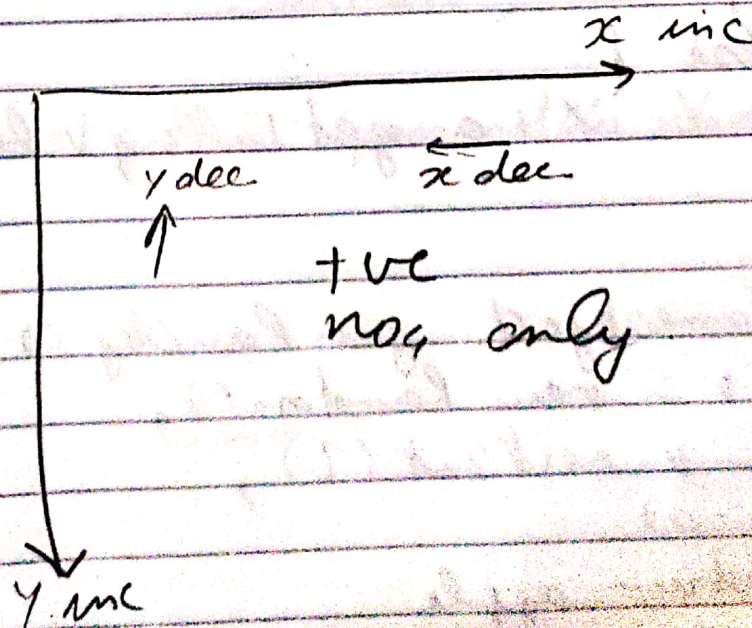 x inc
y dec
x dec
+ve
nos only
y inc